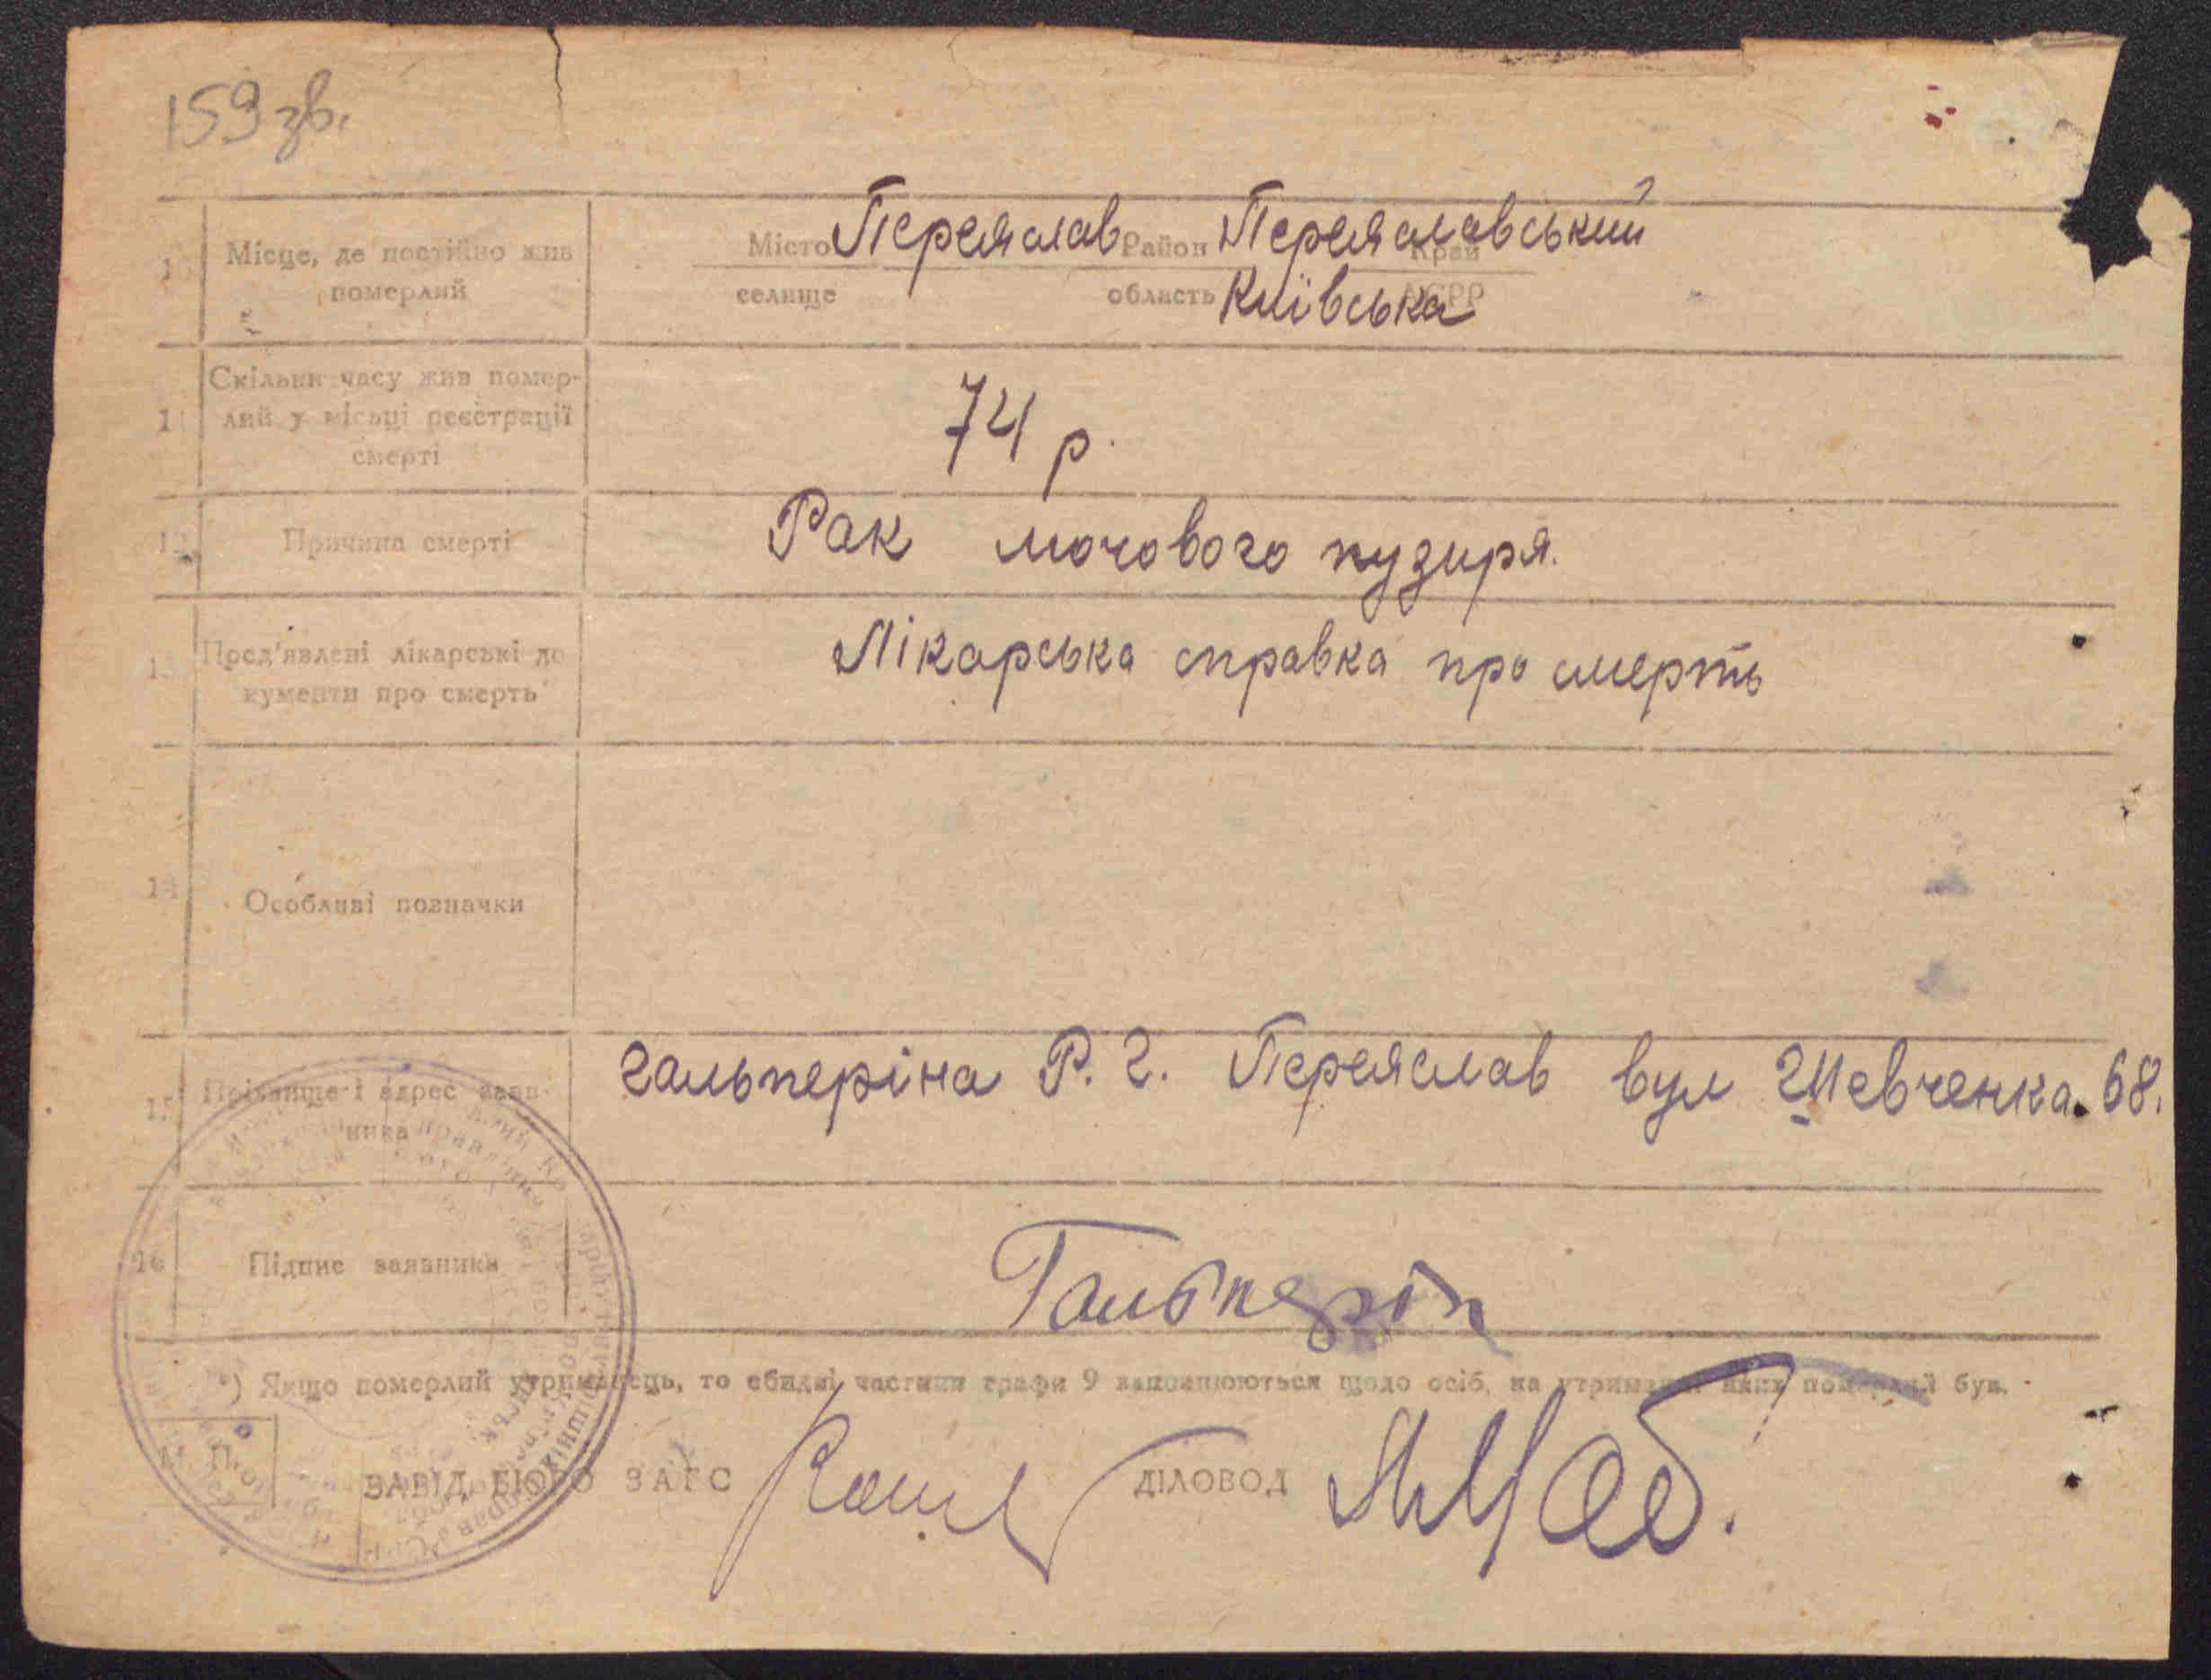 159 зв.
10 Місце, де постійно жив померлий
Місто Переяслав Район Переяславський Край
селище область Київська АСРР
11 Скільки часу жив помер-
лий у місьці реєстрації
смерті
74 р.
12 Причина смерті
Рак мочового пузиря.
13 Пред'явлені лікарські до
кументи про смерть
Лікарська справка про смерть
14 Особливі позначки
15 Прізвище і адрес заяв-
ника
Гальперіна Р. Г. Переяслав вул Шевченка. 68.
16 Підпис заявника
Гальперін
*) Якщо померлий утриманець, то обидві частини графи 9 заповнюються щодо осіб, на утриманні яких померлий був.
М. П.
ЗАВІД. БЮРО ЗАГС
ДІЛОВОД